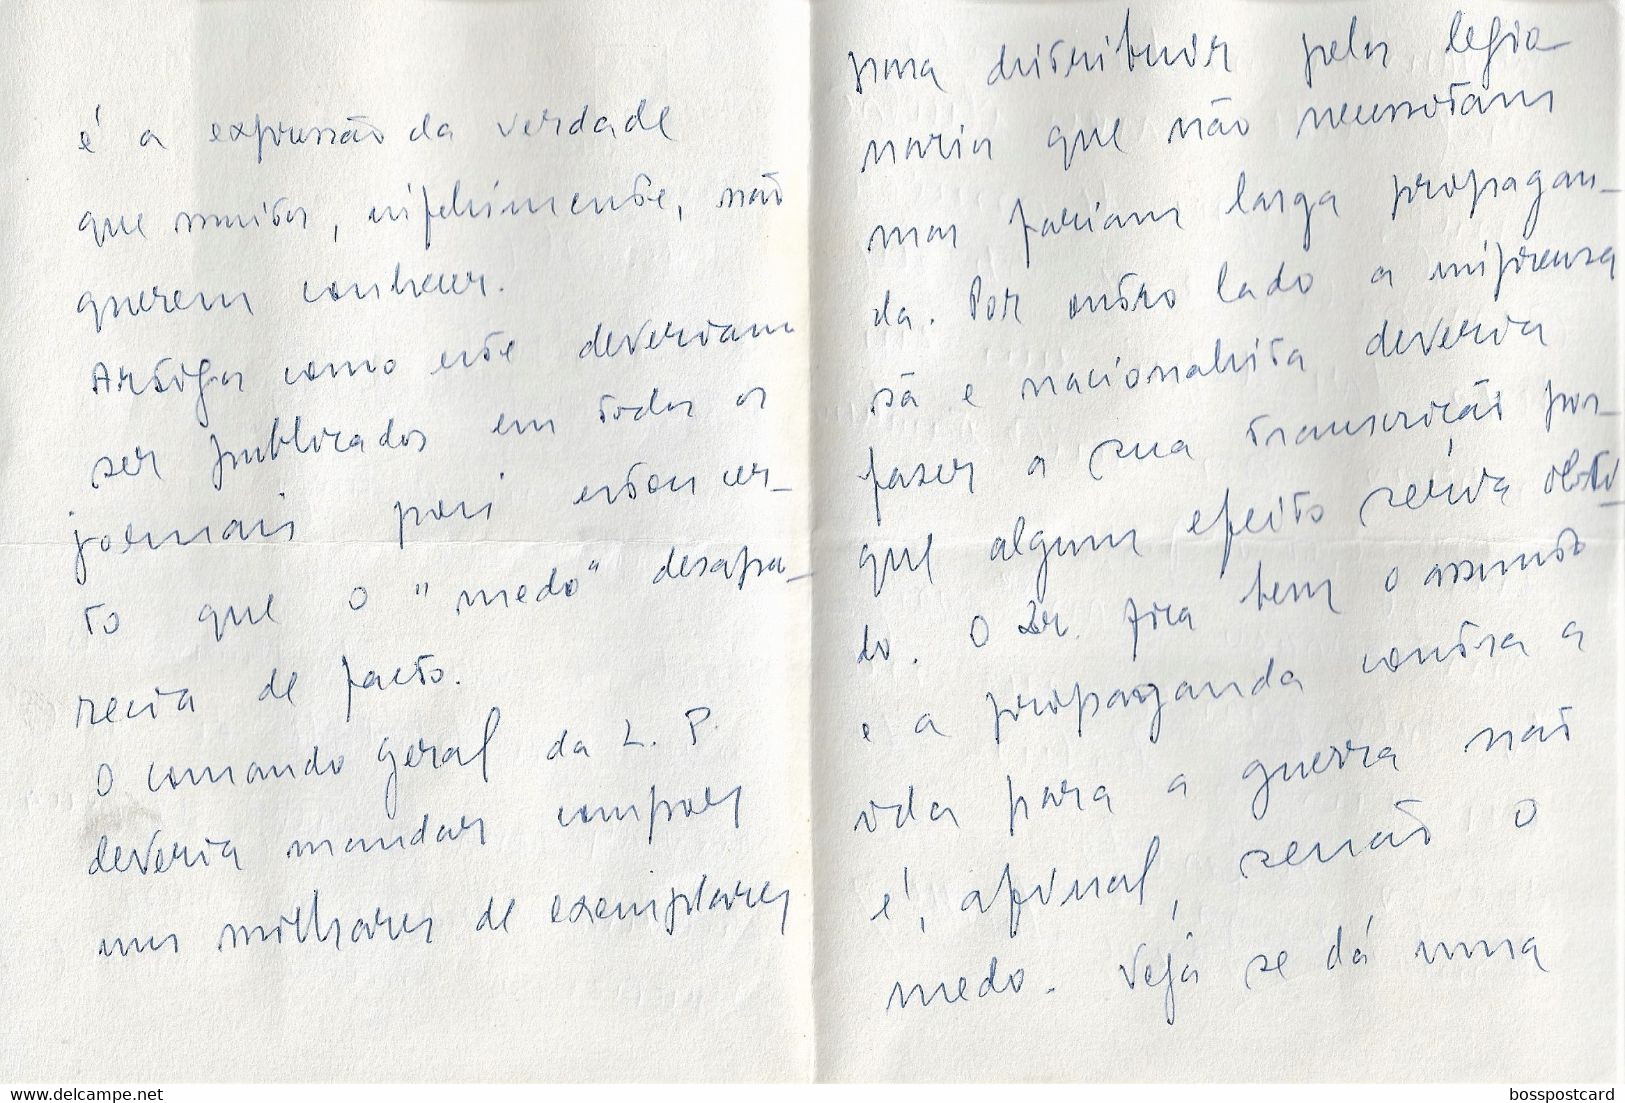 é a expressão da verdade
que muitos, infelizmente, não
querem conhecer.
Artigos como este deveriam
ser publicados em todos os
jornais pois estou cer-
to que o "medo" desapa-
recia de facto.
O comando geral da L. P.
deveria mandar compor
uns milhares de exemplares
para distribuir pelos legio
narios que não necessitam
mas fariam larga propagan-
da. Por outro lado a imprensa
sã e nacionalista deveria
fazer a sua transcrição por-
que algum efeito seria obti-
do. O Dr. fira bem o assunto
e a propaganda contra a
ida para a guerra não
é, afinal, senão o
medo. Veja se dá uma
bosspostcard
bosspostcard.com